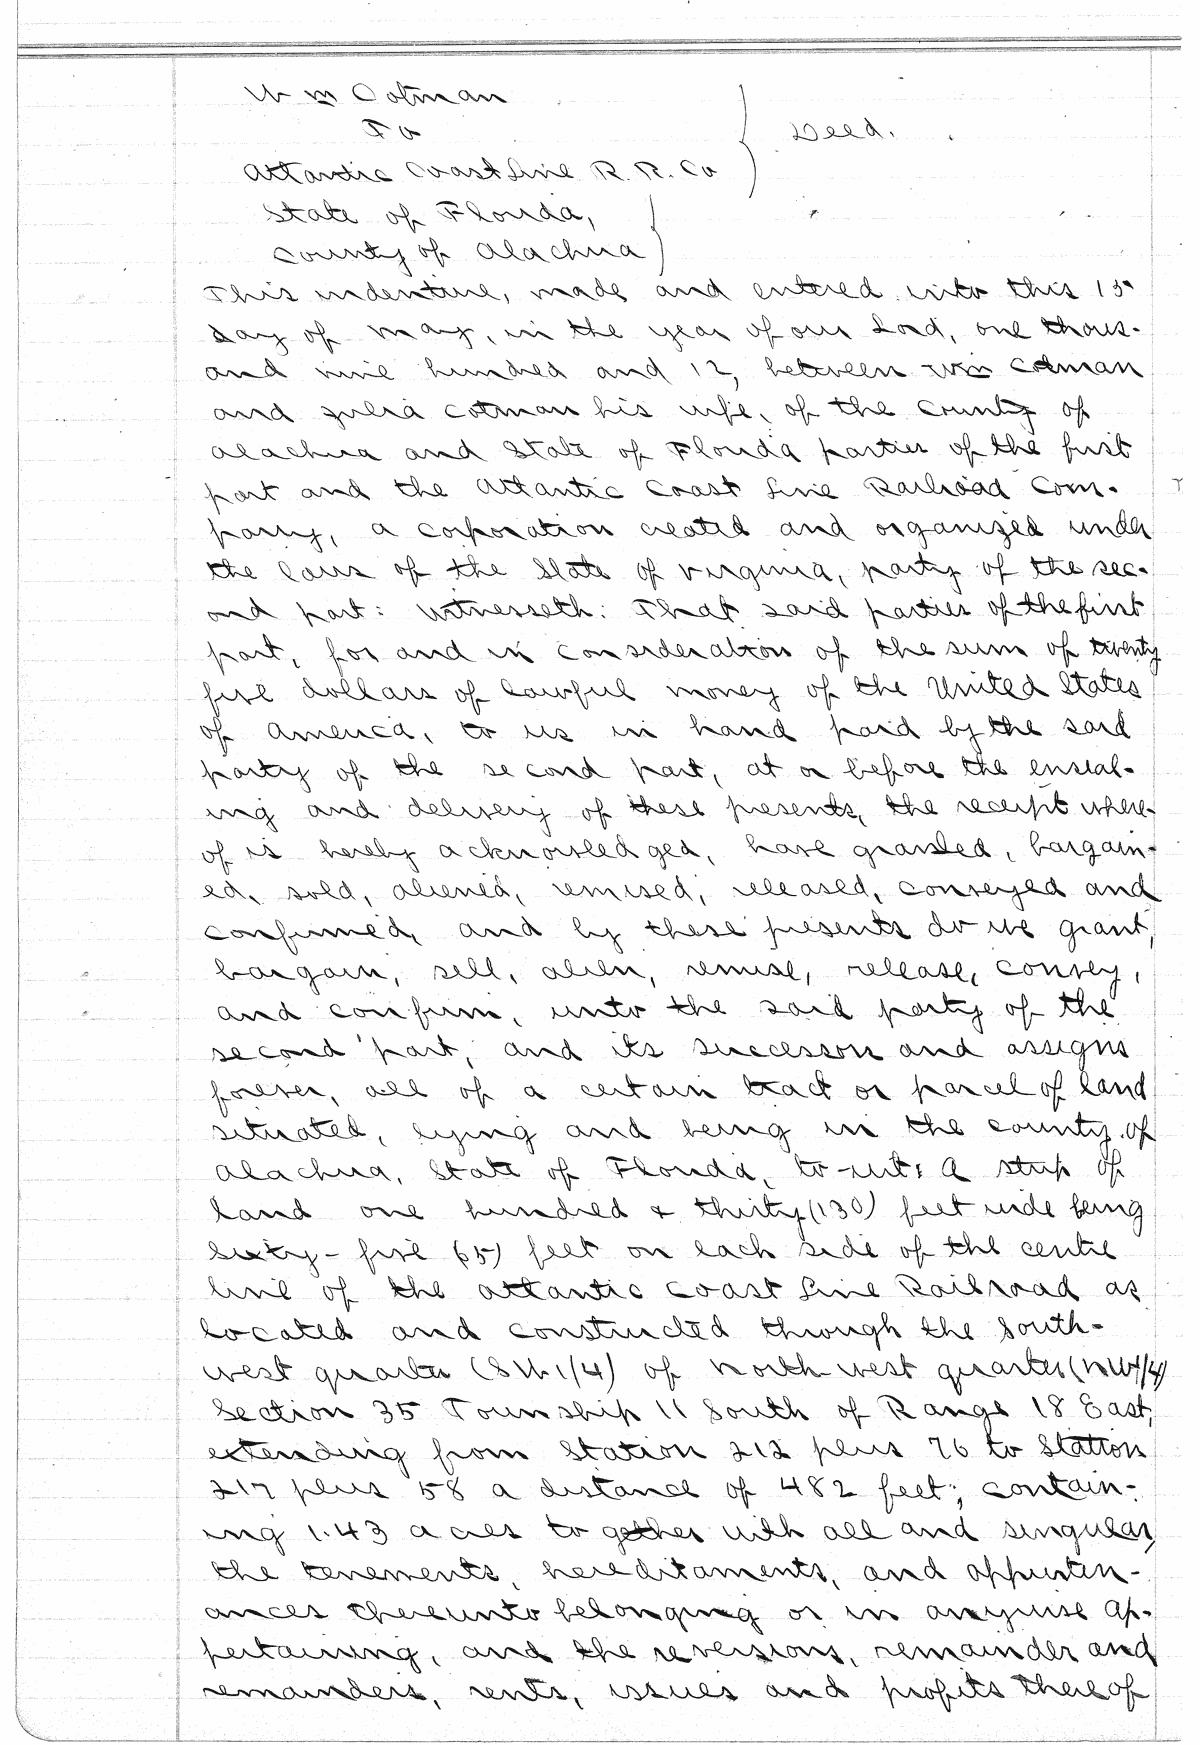 Wm Cotman
To
Deed.
Atlantic Coast Line R. R. Co
State of Florida,
County of Alachua
This indenture, made and entered into this 15"
day of May, in the year of our Lord, one thous-
and nine hundred and 12, between Wm Cotman
and Julia Cotman his wife, of the County of
Alachua and State of Florida parties of the first
part and the Atlantic Coast Line Railroad Com-
pany, a corporation created and organized under
the laws of the State of Virginia, party of the sec-
ond part: Witnesseth: That said parties of the first
part, for and in consideration of the sum of twenty
five dollars of lawful money of the United States
of America, to us in hand paid by the said
party of the second part, at or before the enseal-
ing and delivery of these presents, the receipt where-
of is hereby acknowledged, have granted, bargain-
ed, sold, aliened, remised, released, conveyed and
confirmed, and by these presents do we grant,
bargain, sell, alien, remise, release, convey,
and confirm, unto the said party of the
second part, and its successors and assigns
forever, all of a certain tract or parcel of land
situated, lying and being in the county of
Alachua, State of Florida, to-wit: A strip of
land one hundred & thirty (130) feet wide being
Sixty-five 65) feet on each side of the centre
line of the Atlantic Coast Line Railroad as
located and constructed through the South-
west quarter (SW 1/4) of North-west quarter (NW 1/4)
Section 35 Township 11 South of Range 18 East,
extending from Station 212 plus 76 to Station
217 plus 58 a distance of 482 feet; contain-
ing 1.43 acres together with all and singular,
the tenements, hereditaments, and appurten-
ances thereunto belonging or in anywise ap-
pertaining, and the reversions, remainder and
remainders, rents, issues and profits thereof